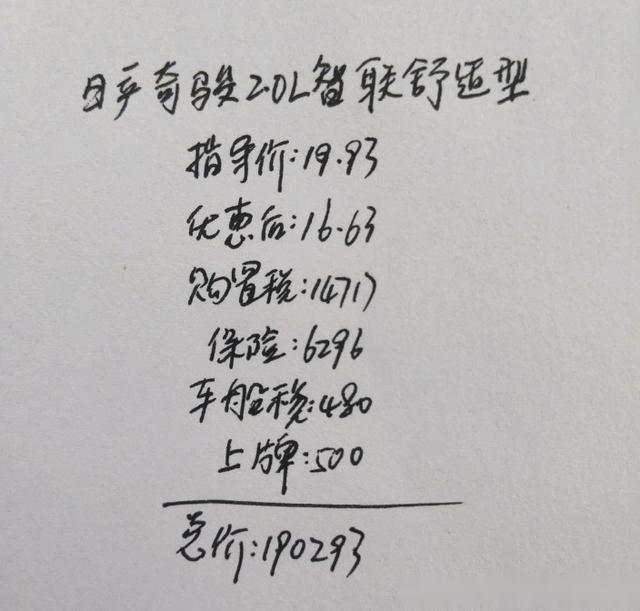 日产奇骏2.0L智联舒适型
指导价:19.93
优惠后:16.63
购置税:14717
保险:6296
车船税:480
上牌:500
总价:190293